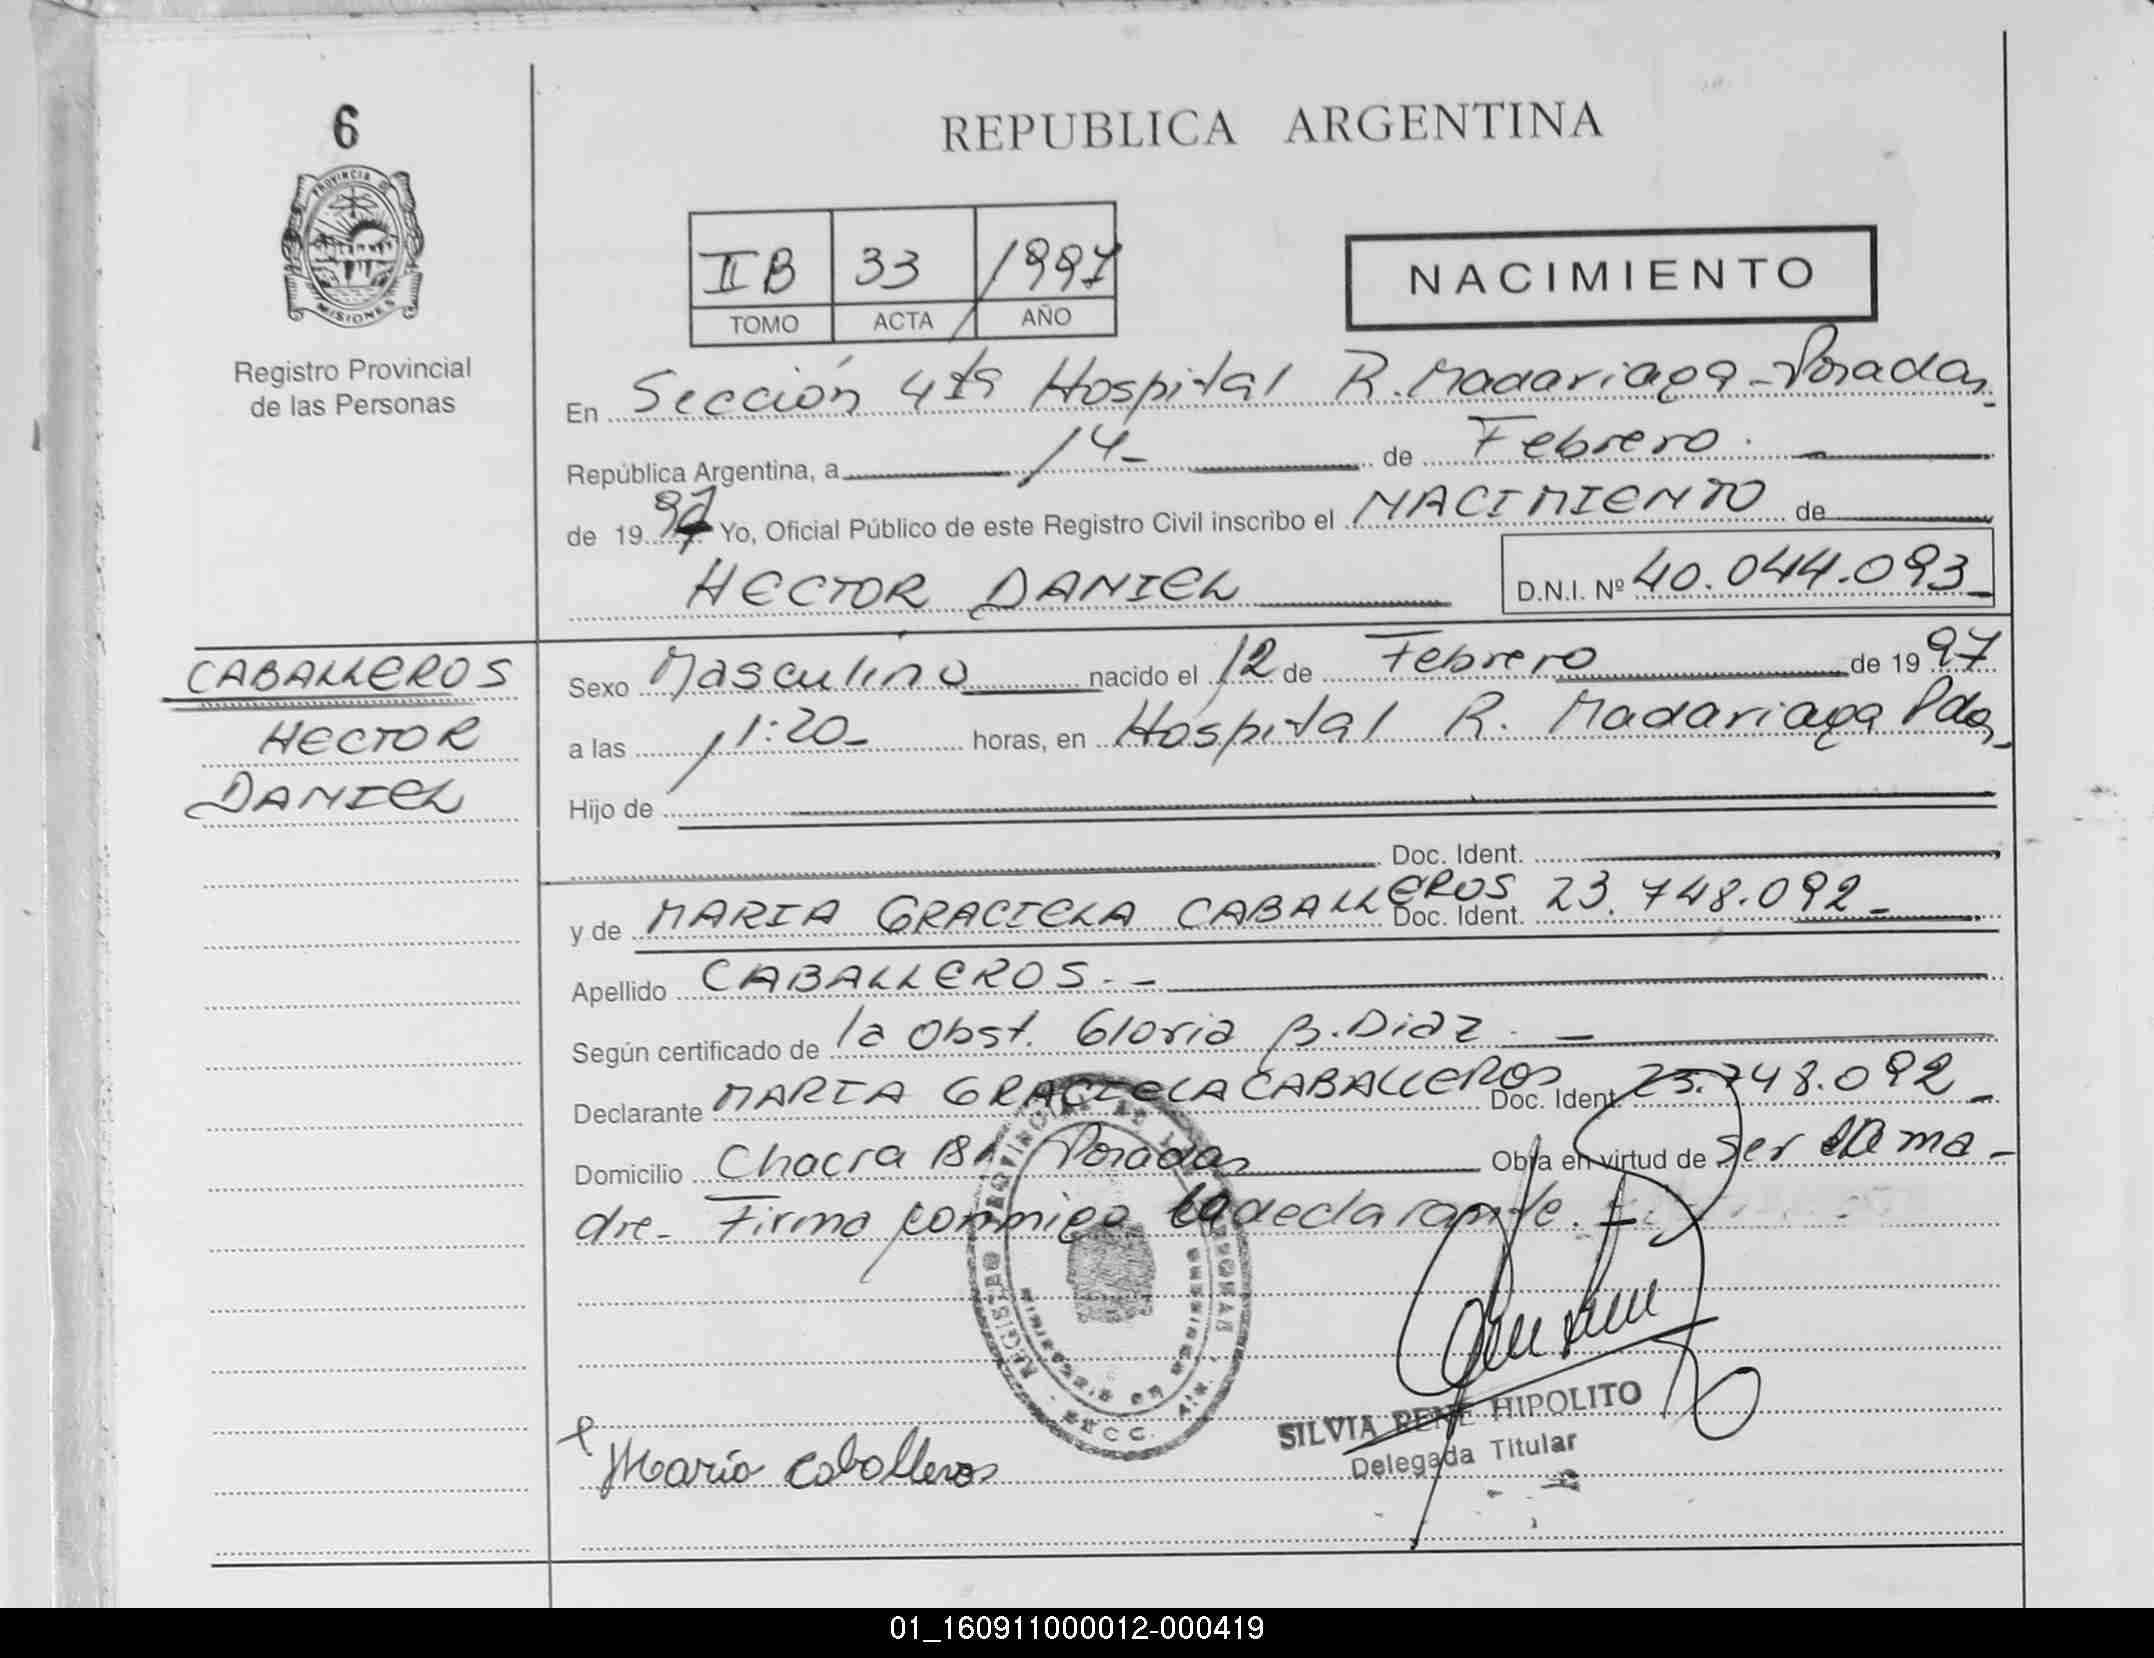 6
PROVINCIA DE
MISIONES
Registro Provincial
de las Personas
REPUBLICA ARGENTINA
II B 33 1997
TOMO ACTA AÑO
NACIMIENTO
En Sección 4ta Hospital R. Madariaga - Posadas
República Argentina, a 14 de Febrero
de 1997 Yo, Oficial Público de este Registro Civil inscribo el NACIMIENTO de
HECTOR DANIEL D.N.I. Nº 40.044.093
CABALLEROS
HECTOR
DANIEL
Sexo Masculino nacido el 12 de Febrero de 1997
a las 1:20 horas, en Hospital R. Madariaga Pdas
Hijo de
Doc. Ident.
y de MARIA GRACIELA CABALLEROS Doc. Ident. 23.748.092
Apellido CABALLEROS.-
Según certificado de la Obst. Gloria B. Diaz
Declarante MARIA GRACIELA CABALLEROS Doc. Ident. 23.748.092
Domicilio Chacra Posadas Obra en virtud de ser la ma-
dre- Firma conmigo la declarante.
SILVIA RENE HIPOLITO
Delegada Titular
Maria Caballeros
01_160911000012-000419